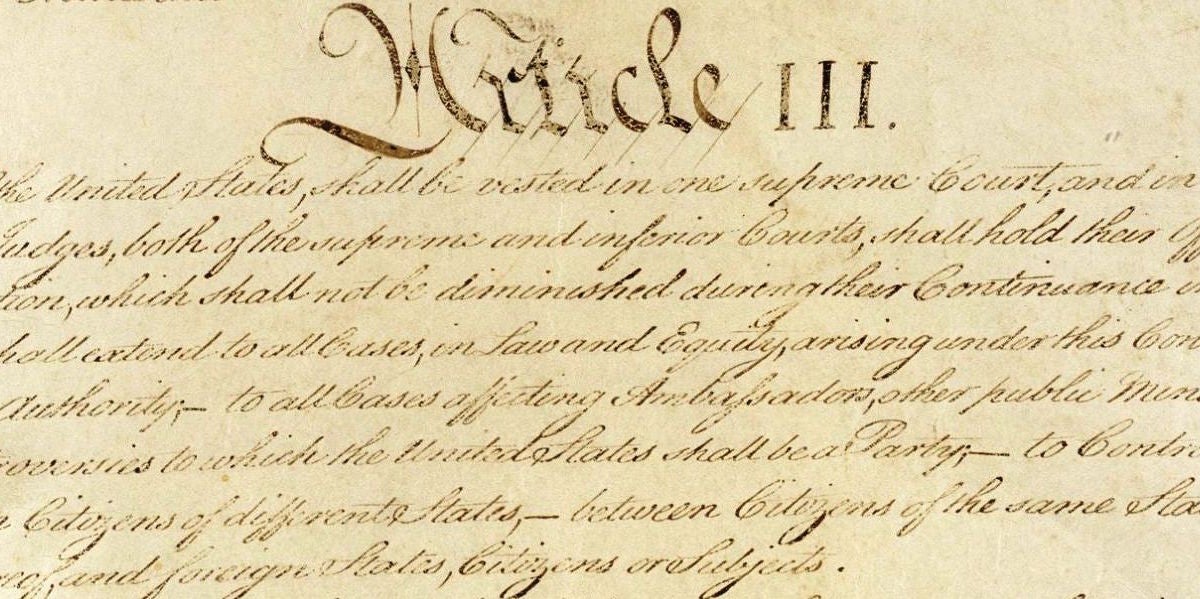 Article III.
the United States, shall be vested in one supreme Court, and in
Judges, both of the supreme and inferior Courts, shall hold their Off
tion, which shall not be diminished during their Continuance in
hall extend to all Cases, in Law and Equity, arising under this Con
Authority;— to all Cases affecting Ambassadors, other public Mini
roversies to which the United States shall be a Party;— to Contro
n Citizens of different States,— between Citizens of the same Sta
reof, and foreign States, Citizens or Subjects.